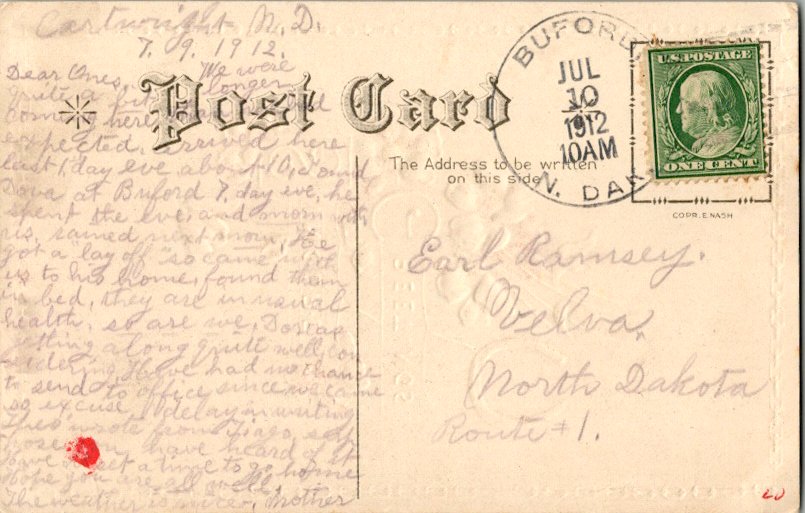 Cartwright N.D.
7. 9. 1912.
Dear Ones, We were
quite a bit longer
coming here than
expected, arrived here
last 1, day eve about 10, found
Dova at Buford 7, day eve, he
spent the eve, and morn with
us, rained next morn, He
got a "lay off" so came with
us to his home, found them
in bed, they are in usual
health, so are we,
getting along quite well, con-
sidering. Have had no chance
to send to office since we came
so excuse delay in writing
wrote from
have heard of it
Have not set a time to go home
Hope you are all well,
The weather is nicer, Mother
Post Card
The Address to be written
on this side
BUFORD
JUL
10
1912
10AM
N. DAK
U.S. POSTAGE
ONE CENT
COPR. E. NASH
Earl Ramsey.
Velva,
North Dakota
Route #1.
20